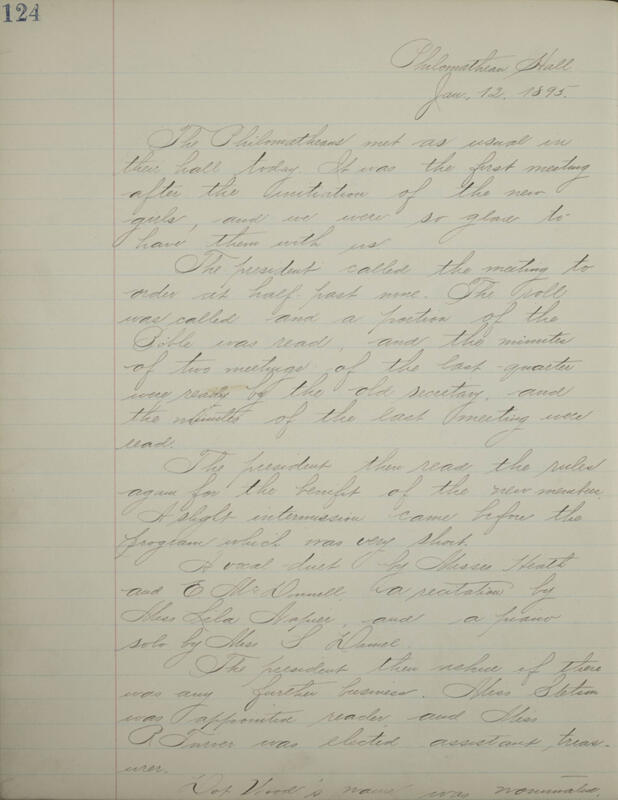 124
Philomathean Hall
Jan. 12. 1895.
The Philomatheans met as usual in
their hall today. It was the first meeting
after the initiation of the new
girls, and we were so glad to
have them with us
The president called the meeting to
order at half past nine. The roll
was called and a portion of the
Bible was read, and the minutes
of two meetings of the last quarter
were read by the old secretary, and
the minutes of the last meeting were
read.
The president then read the rules
again for the benefit of the new members.
A slight intermission came before the
program which was very short.
A vocal duet by Misses Heath
and E. McDonnell, a recitation by
Miss Lila Napier, and a piano
solo by Miss S
The president then asked if there
was any further business. Miss
was appointed reader and Miss
P. Turner was elected assistant treas-
urer.
Dot Wood's name was nominated.